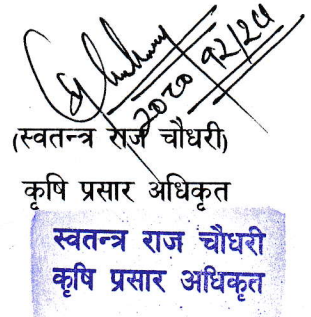 २०८०
१२/२५
(स्वतन्त्र राज चौधरी)
कृषि प्रसार अधिकृत
स्वतन्त्र राज चौधरी
कृषि प्रसार अधिकृत